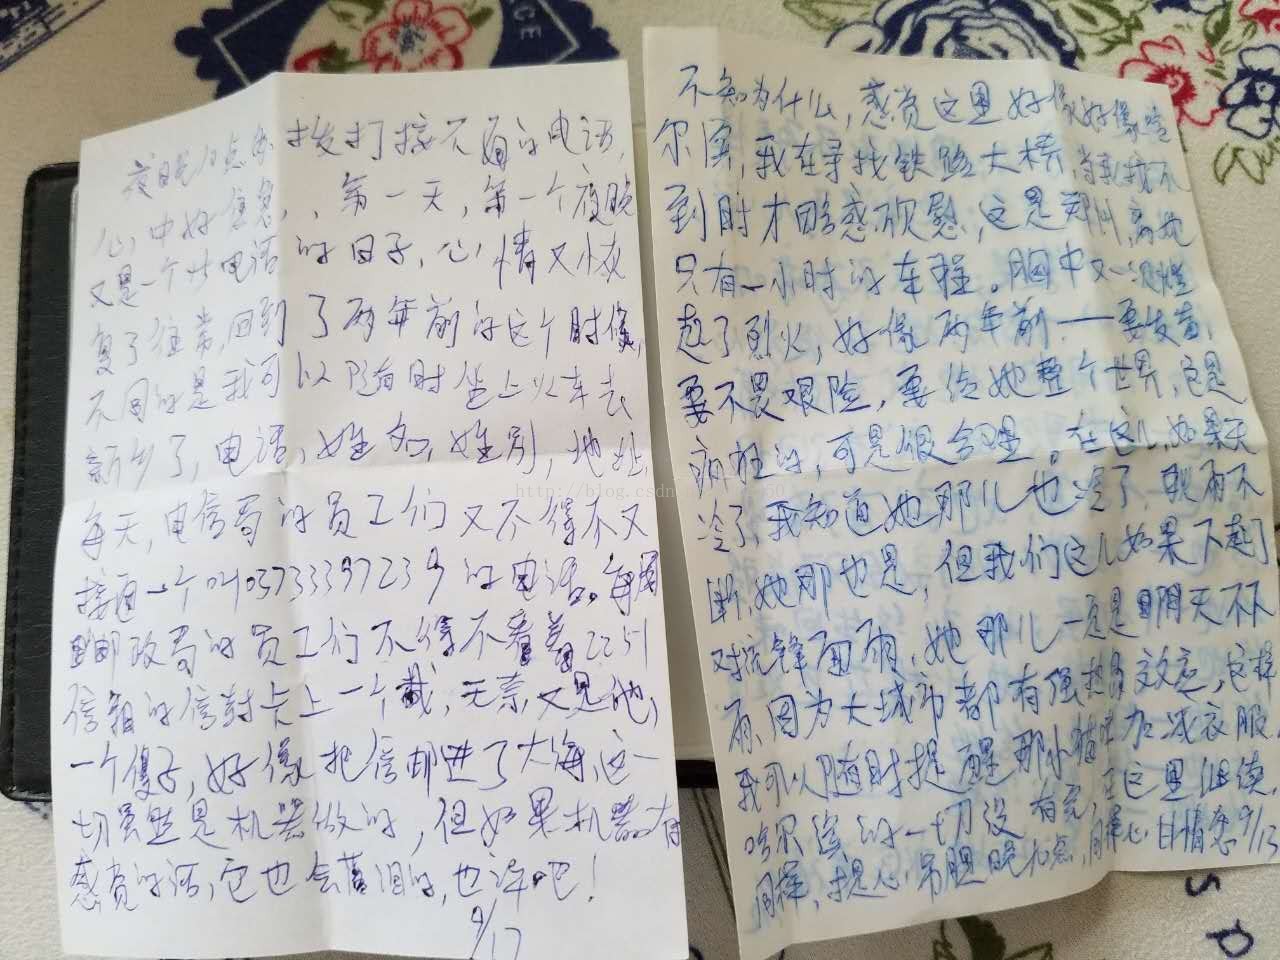 夜晚10点多,拨打接不通的电话,
心中好焦急,、第一天,第一个夜晚
又是一个打电话的日子,心情又恢
复了往常,回到了两年前的这个时候,
不同的是我可以随时坐上火车去
新乡了,电话,姓名,姓别,地址,
每天,电信局的员工们又不得不又
接通一个叫03733397239的电话。每周
邮政局的员工们不得不看着2251
信箱的信封卡上一个戳,无奈又是他,
一个傻子,好像把信邮进了大海,这一
切虽然是机器做的,但如果机器有
感觉的话,它也会落泪的,也许吧!
9/17
不知为什么,感觉这里好像好像哈
尔滨,我在寻找铁路大桥,当我找不
到时才略感欣慰,这是郑州,离她
只有一小时的车程。胸中又一次燃
起了烈火,好像两年前——要发奋,
要不畏艰险,要给她整个世界,它是
疯狂的,可是很合理。在这儿,如果天
冷了,我知道她那儿也冷了,秋雨不
断,她那也是,但我们这儿如果下起了
对流锋面雨,她那儿一定是阴天不下
雨,因为大城市都有强热岛效应,这样
我可以随时提醒那小猫咪加减衣服。
哈尔滨的一切没有完,在这里继续,
同样,提心吊胆晚10点,同样心甘情愿9/13
http://blog.csdn
CE